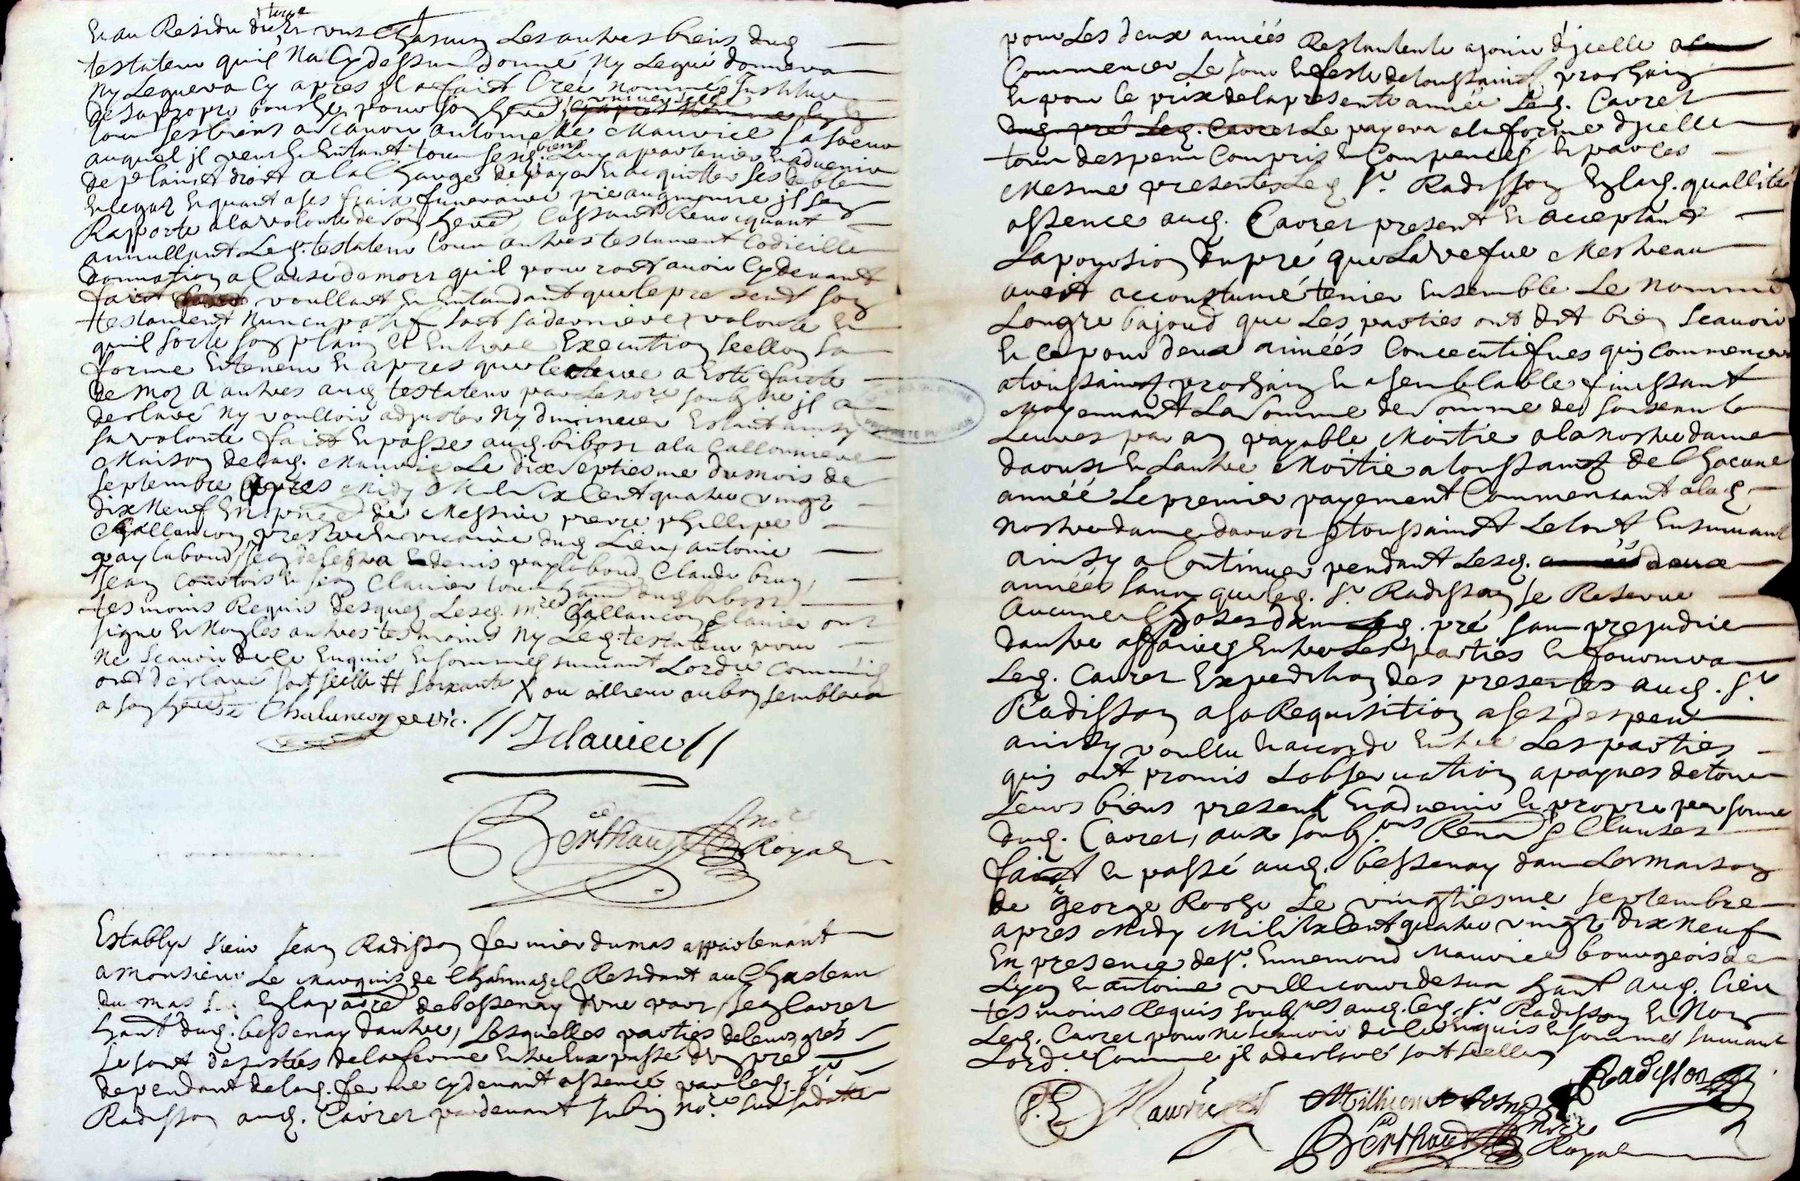 Et au Residu de vns Chascun Les autres biens dud
testateur quil Na Cy dessus donné Ny Legué donnera
Ny Leguera Cy apres il a faict Creé nommé Institue
de sa propre bouche pour son here
tous ses biens a scauoir antoinette Mauvice sa soeur
auquel il veut Et Entant tous sesd biens Luy apartenir Et aduenir
de plain droit a la Charge de payer Et acquitter ses debtes
Et legatz Et quant a ses fraix funeraires pie augmosne il sen
Raporte a la volonté de son here Cassant Reuocquant
annullant Led. testateur tous autres testament Codicille
donnation a Cause de mort quil pour roit auoir Cy deuant
faict voullant Et Entandant que le present son
testament Nuncupatif soit sa derniere volonté Et
quil sorte son plain Et Entiere Execution scellon sa
forme Et teneur Et apres que lecture a esté faicte
de mot a autres aud testateur par Le nore soubzne il a
declaré Ny voulloir adjuster Ny diminuer Estant ainsy
sa volonté faict Et passé aud. bibost a la Gallonniere
Maison de lad. Mauvice Le dixseptiesme du mois de
septembre apres Midy Mil six Cent quatre vingt
dix Neuf En pnce de Messire pierre phillipe
Challancon prestre vicaire dud Lieu, antoine
paylaboud, Jean Et denis paylaboud, Claude brun,
Jean Courtois Et Jean Clavier tous dud bibost,
tesmoins Requis desquels Lesd. mre Challancon Clavier ont
signé Et Non les autres tesmoins Ny Led testateur pour
Ne scauoir de Ce Enquis Et sommés suivant Lordce Comme ils
ont declaré soit scellé soixante X ou ailleur au bon semblera
a son here Chalancon vic.
Jclavier
Berthaud nore Royal
Estably sieur Jean Radisson fermier du mas appartenant
a Monsieur Le Marquis de Chalmazel Residant au Chasteau
du mas En la parre de bessenay dune part, Jean Cavret
hant dud. bessenay dautre, Lesquelles parties de leurs grés
se sont departies de la ferme Entre Eux passé dun pré
dependant de lad. ferme cy deuant assencé par led. sr
Radisson aud. Cavret par deuant Jubin nore sur sa datte
pour Les deux années Restantente a joüir dicelle a
Commencer Le Jour Et feste de toussaintz prochain
Et pour le prix de la presente année Led. Cavret
dud. pré Led. Cavret Le payera a la forme dicelle
tous despens Compris Et Compencés Et par Ces
Mesme presentes Led sr. Radisson En lad. quallité
assence aud. Cavret present Et acceptant
La portion du pré que La vefue Mesureau
auoit accoustumé tenir Ensemble Le nommé
Longre bajoud que Les parties ont dit bien scauoir
Et Ce pour deux années Concecutifues quj commencera
a toussainct prochain Et a semblable finissant
Moyennant La somme de somme de soixante
Liures par an payable Moitié a la Nostre dame
daoust Et Lautre Moitié a toussainct de Chacune
année Le premier payement Commensant a lad
nostre dame daoust Et toussainct Le tout Ensuiuant
ainsy a Continuer pendant Lesd. années deux
années sans que led. sr Radisson se Reserue
aucune Choses dans led. pré sans prejudice
dautre affaires Entre Les parties Et fournira
Led. Cavret Expedition des presentes aud. sr.
Radisson a sa Requisition a ses despens
ainsy voullu Et accordé Entre Les parties
quj ont promis Lobseruation a paynes de tous
Leurs biens present Et aduenir Et propre personne
dud. Cavret, aux soubz.ons Renon Et Clauses
faict Et passé aud. bessenay dans La maison
de George Roche Le vingtiesme septembre
apres Midy Mil six Cent quatre vingt dix Neuf
En presence de sr. Ennemond Mauvice bourgeois de
Lyon Et antoine hant aud. Lieu
tesmoins Requis soubznés auec led. sr. Radisson Et Non
Led. Cavret pour ne scauoir de Ce Enquis Et sommé suivant
Lordce Comme il a declaré soit scellé
Radisson
Mauvice
Berthaud nore Royal